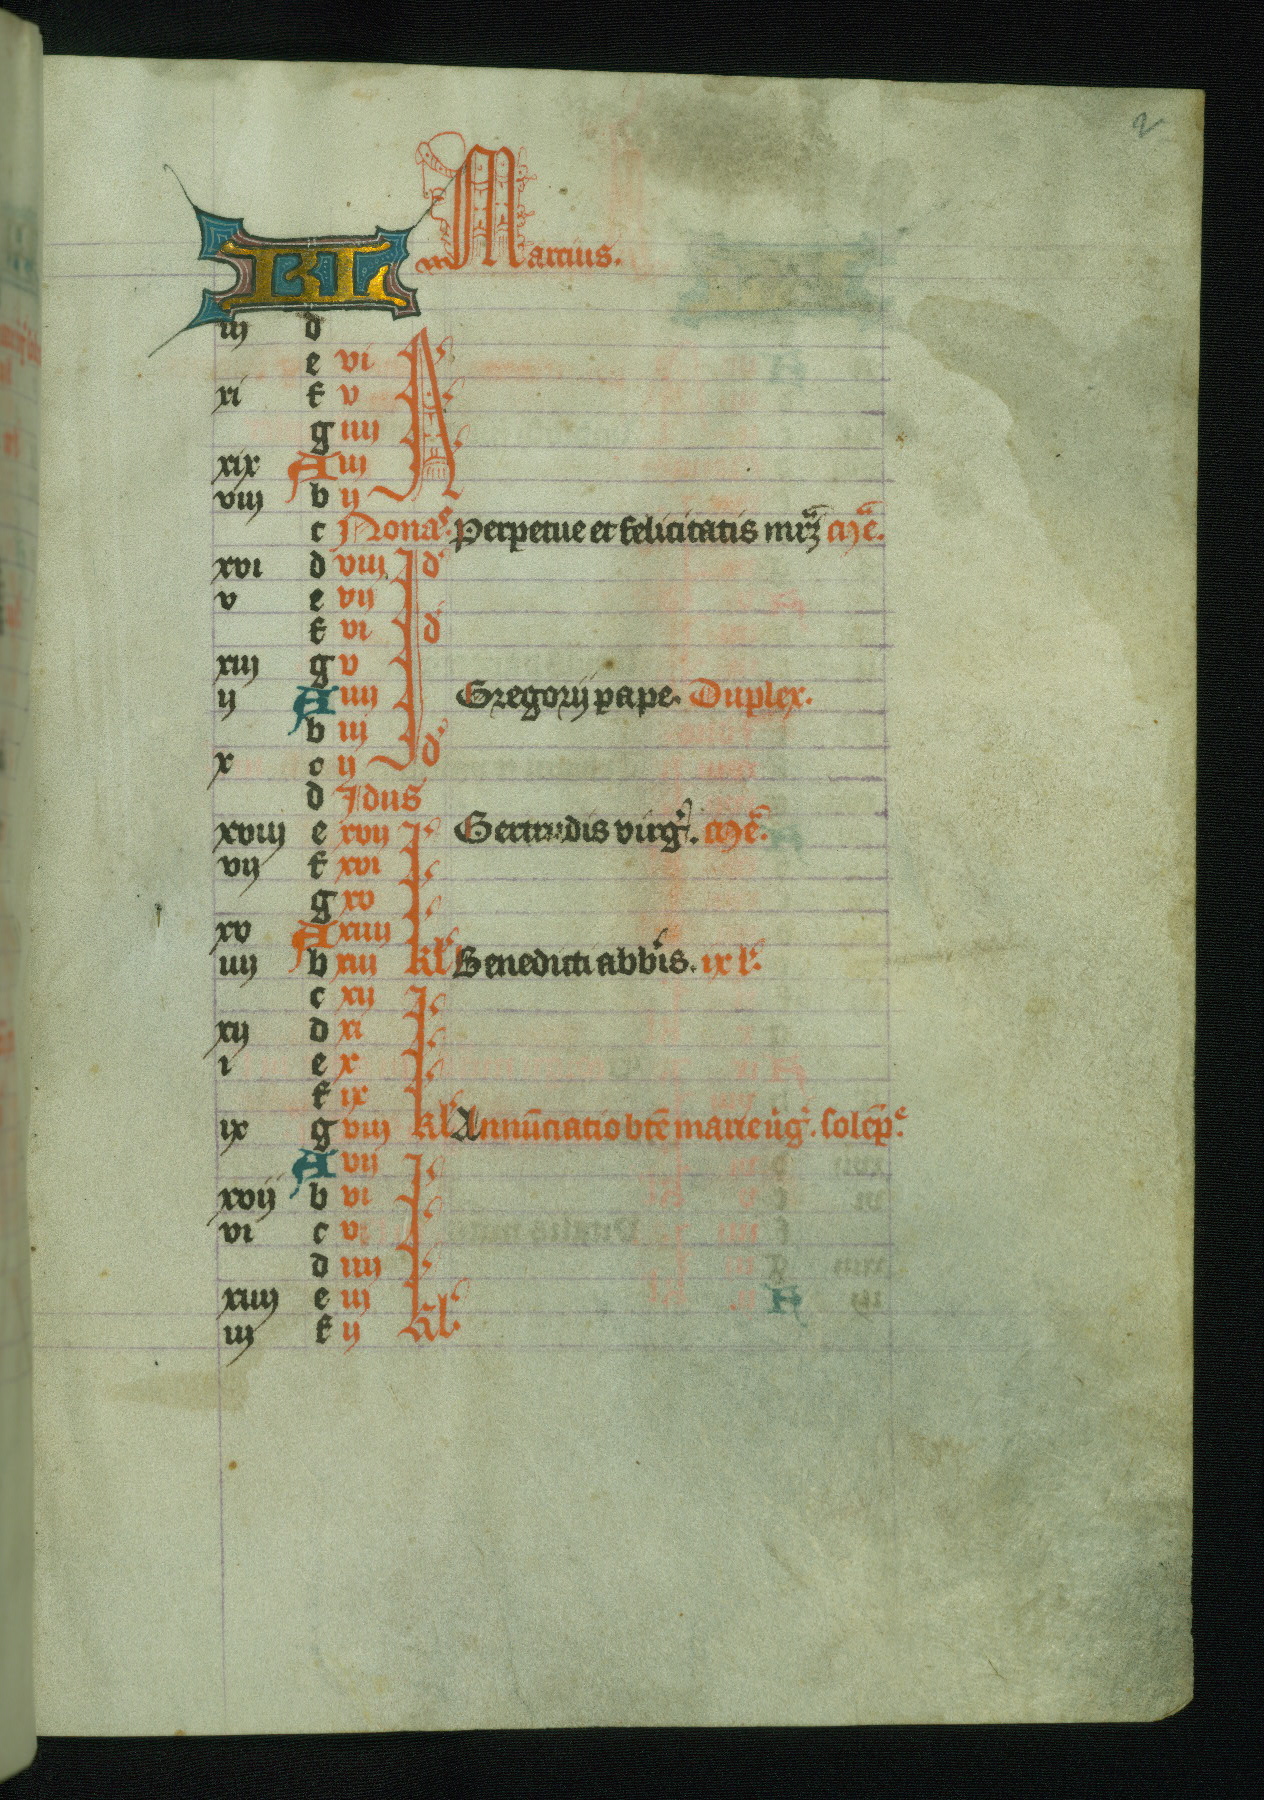 2
KL Marcius.
iij d
e vi
xi f v
g iiij
xix A iij
viij b ij
c Nonas. Perpetue et felicitatis mrꝫ me.
xvi d viij Id
v e vij
f vi Id
xiij g v
ij A iiij Gregorij pape. Duplex.
b iij
x c ij Id
d Idus
xviij e xvij Gertrudis virg. me.
vij f xvi
g xv
xv A xiiij
iiij b xiij kl Benedicti abbis. ix l.
c xij
xij d xi
i e x
f ix
ix g viij kl Annūciatio bte marie uig. solēp.
A vij
xvij b vi
vi c v
d iiij
xiiij e iij
iij f ij kl.